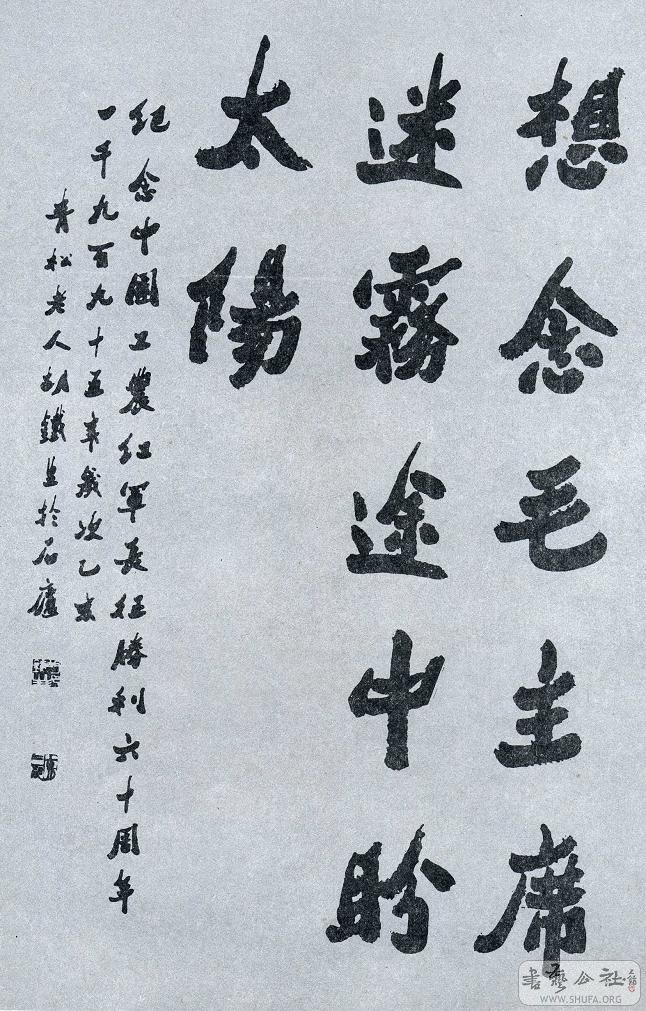 想念毛主席
迷霧途中盼
太陽
紀念中國工農紅軍長征勝利六十周年
一千九百九十五年歲次乙亥
青松老人胡鐵生於石廬
書藝公社
WWW.SHUFA.ORG